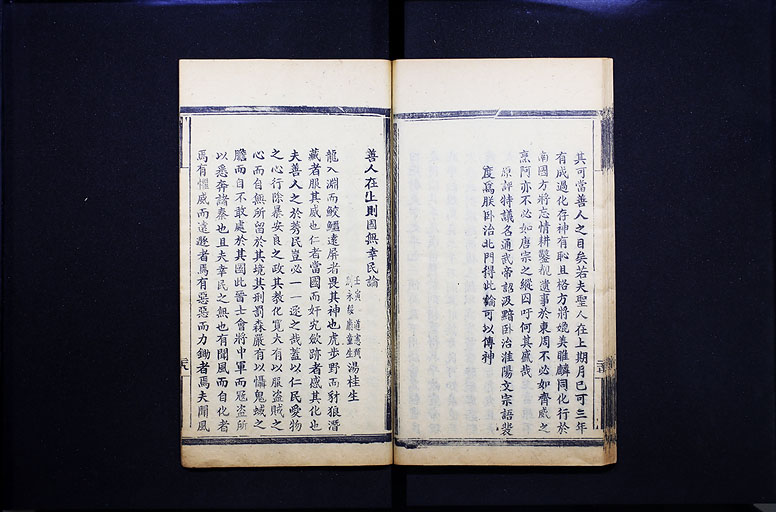 其可當善人之目矣若夫聖人在上期月已可三年
有成過化存神有恥且格方將媲美雎麟同化行於
南國方將忘情耕鑿覩遺事於東周不必如齊威之
烹阿亦不必如唐宗之縱囚吁何其盛哉
原評特議名通武帝詔汲黯卧治淮陽文宗語裴
度爲朕卧治北門得此論可以傳神
善人在上則國無幸民論
壬寅
湯桂生
龍入淵而鮫鱷遠屏者畏其神也虎步野而豺狼潛
藏者服其威也仁者當國而奸宄歛跡者感其化也
夫善人之於莠民豈必一一逐之哉蓋以仁民愛物
之心行除暴安良之政其教化寬大有以服盜賊之
心而自無所留於其境其刑罰森嚴有以懾鬼蜮之
膽而自不敢處於其國此晉士會將中軍而冦盜所
以悉奔諸秦也且夫幸民之無也有聞風而自化者
焉有懼威而遠遯者焉有惡惡而力鋤者焉夫聞風